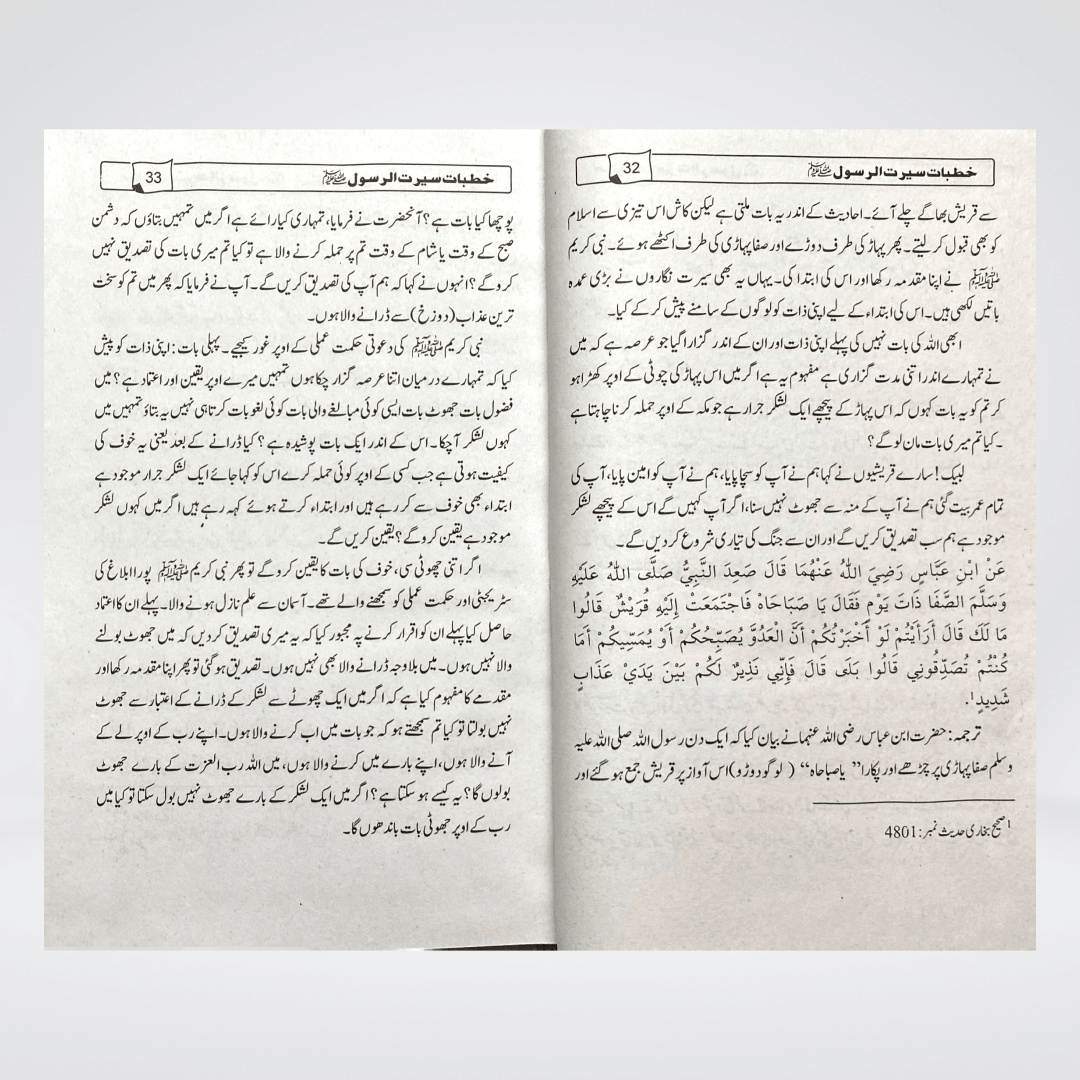 خطبات سیرت الرسول ﷺ 32
سے قریش بھاگے چلے آئے۔ احادیث کے اندر یہ بات ملتی ہے لیکن کاش اس تیزی سے اسلام
کو بھی قبول کر لیتے۔ پھر پہاڑ کی طرف دوڑے اور صفا پہاڑی کی طرف اکٹھے ہوئے۔ نبی کریم
ﷺ نے اپنا مقدمہ رکھا اور اس کی ابتدا کی۔ یہاں یہ بھی سیرت نگاروں نے بڑی عمدہ
باتیں لکھی ہیں۔ اس کی ابتداء کے لیے اپنی ذات کو لوگوں کے سامنے پیش کر کے کیا۔
ابھی اللہ کی بات نہیں کی پہلے اپنی ذات اور ان کے اندر گزارا گیا جو عرصہ ہے کہ میں
نے تمہارے اندر اتنی مدت گزاری ہے مفہوم یہ ہے اگر میں اس پہاڑ کی چوٹی کے اوپر کھڑا ہو
کر تم کو یہ بات کہوں کہ اس پہاڑ کے پیچھے ایک لشکر جرار ہے جو مکہ کے اوپر حملہ کرنا چاہتا ہے
۔ کیا تم میری بات مان لو گے؟
لبیک! سارے قریشیوں نے کہا ہم نے آپ کو سچا پایا، ہم نے آپ کو امین پایا، آپ کی
تمام عمر بیت گئی ہم نے آپ کے منہ سے جھوٹ نہیں سنا، اگر آپ کہیں گے اس کے پیچھے لشکر
موجود ہے ہم سب تصدیق کریں گے اور ان سے جنگ کی تیاری شروع کر دیں گے۔
عَنْ ابْنِ عَبَّاسٍ رَضِيَ اللَّهُ عَنْهُمَا قَالَ صَعِدَ النَّبِيُّ صَلَّى اللَّهُ عَلَيْهِ
وَسَلَّمَ الصَّفَا ذَاتَ يَوْمٍ فَقَالَ يَا صَبَاحَاهْ فَاجْتَمَعَتْ إِلَيْهِ قُرَيْشٌ قَالُوا
مَا لَكَ قَالَ أَرَأَيْتُمْ لَوْ أَخْبَرْتُكُمْ أَنَّ الْعَدُوَّ يُصَبِّحُكُمْ أَوْ يُمَسِّيكُمْ أَمَا
كُنْتُمْ تُصَدِّقُونِي قَالُوا بَلَى قَالَ فَإِنِّي نَذِيرٌ لَكُمْ بَيْنَ يَدَيْ عَذَابٍ
شَدِيدٍ¹.
ترجمہ: حضرت ابن عباس رضی اللہ عنہما نے بیان کیا کہ ایک دن رسول اللہ صلی اللہ علیہ
وسلم صفا پہاڑی پر چڑھے اور پکارا” یا صباحاہ“ ( لوگو دوڑو) اس آواز پر قریش جمع ہو گئے اور
¹ صحیح بخاری حدیث نمبر: 4801
خطبات سیرت الرسول ﷺ 33
پوچھا کیا بات ہے؟ آنحضرت نے فرمایا، تمہاری کیا رائے ہے اگر میں تمہیں بتاؤں کہ دشمن
صبح کے وقت یا شام کے وقت تم پر حملہ کرنے والا ہے تو کیا تم میری بات کی تصدیق نہیں
کرو گے؟ انہوں نے کہا کہ ہم آپ کی تصدیق کریں گے۔ آپ نے فرمایا کہ پھر میں تم کو سخت
ترین عذاب (دوزخ) سے ڈرانے والا ہوں۔
نبی کریم ﷺ کی دعوتی حکمت عملی کے اوپر غور کیجیے۔ پہلی بات: اپنی ذات کو پیش
کیا کہ تمہارے درمیان اتنا عرصہ گزار چکا ہوں تمہیں میرے اوپر یقین اور اعتماد ہے؟ میں
فضول بات جھوٹ بات ایسی کوئی مبالغے والی بات کوئی لغو بات کرتا ہی نہیں یہ بتاؤ تمہیں میں
کہوں لشکر آ چکا۔ اس کے اندر ایک بات پوشیدہ ہے؟ کیا ڈرانے کے بعد یعنی یہ خوف کی
کیفیت ہوتی ہے جب کسی کے اوپر کوئی حملہ کرے اس کو کہا جائے ایک لشکر جرار موجود ہے
ابتداء بھی خوف سے کر رہے ہیں اور ابتداء کرتے ہوئے کہہ رہے ہیں اگر میں کہوں لشکر
موجود ہے یقین کرو گے؟ یقین کریں گے۔
اگر اتنی چھوٹی سی، خوف کی بات کا یقین کرو گے تو پھر نبی کریم ﷺ پورا ابلاغ کی
سٹریٹیجی اور حکمت عملی کو سمجھنے والے تھے۔ آسمان سے علم نازل ہونے والا۔ پہلے ان کا اعتماد
حاصل کیا پہلے ان کو اقرار کرنے پہ مجبور کیا کہ یہ میری تصدیق کر دیں کہ میں جھوٹ بولنے
والا نہیں ہوں۔ میں بلاوجہ ڈرانے والا بھی نہیں ہوں۔ تصدیق ہو گئی تو پھر اپنا مقدمہ رکھا اور
مقدمے کا مفہوم کیا ہے کہ اگر میں ایک چھوٹے سے لشکر کے ڈرانے کے اعتبار سے جھوٹ
نہیں بولتا تو کیا تم سمجھتے ہو کہ جو بات میں اب کرنے والا ہوں۔ اپنے رب کے اوپر لے کے
آنے والا ہوں، اپنے بارے میں کرنے والا ہوں، میں اللہ رب العزت کے بارے جھوٹ
بولوں گا؟ یہ کیسے ہو سکتا ہے؟ اگر میں ایک لشکر کے بارے جھوٹ نہیں بول سکتا تو کیا میں
رب کے اوپر جھوٹی بات باندھوں گا۔